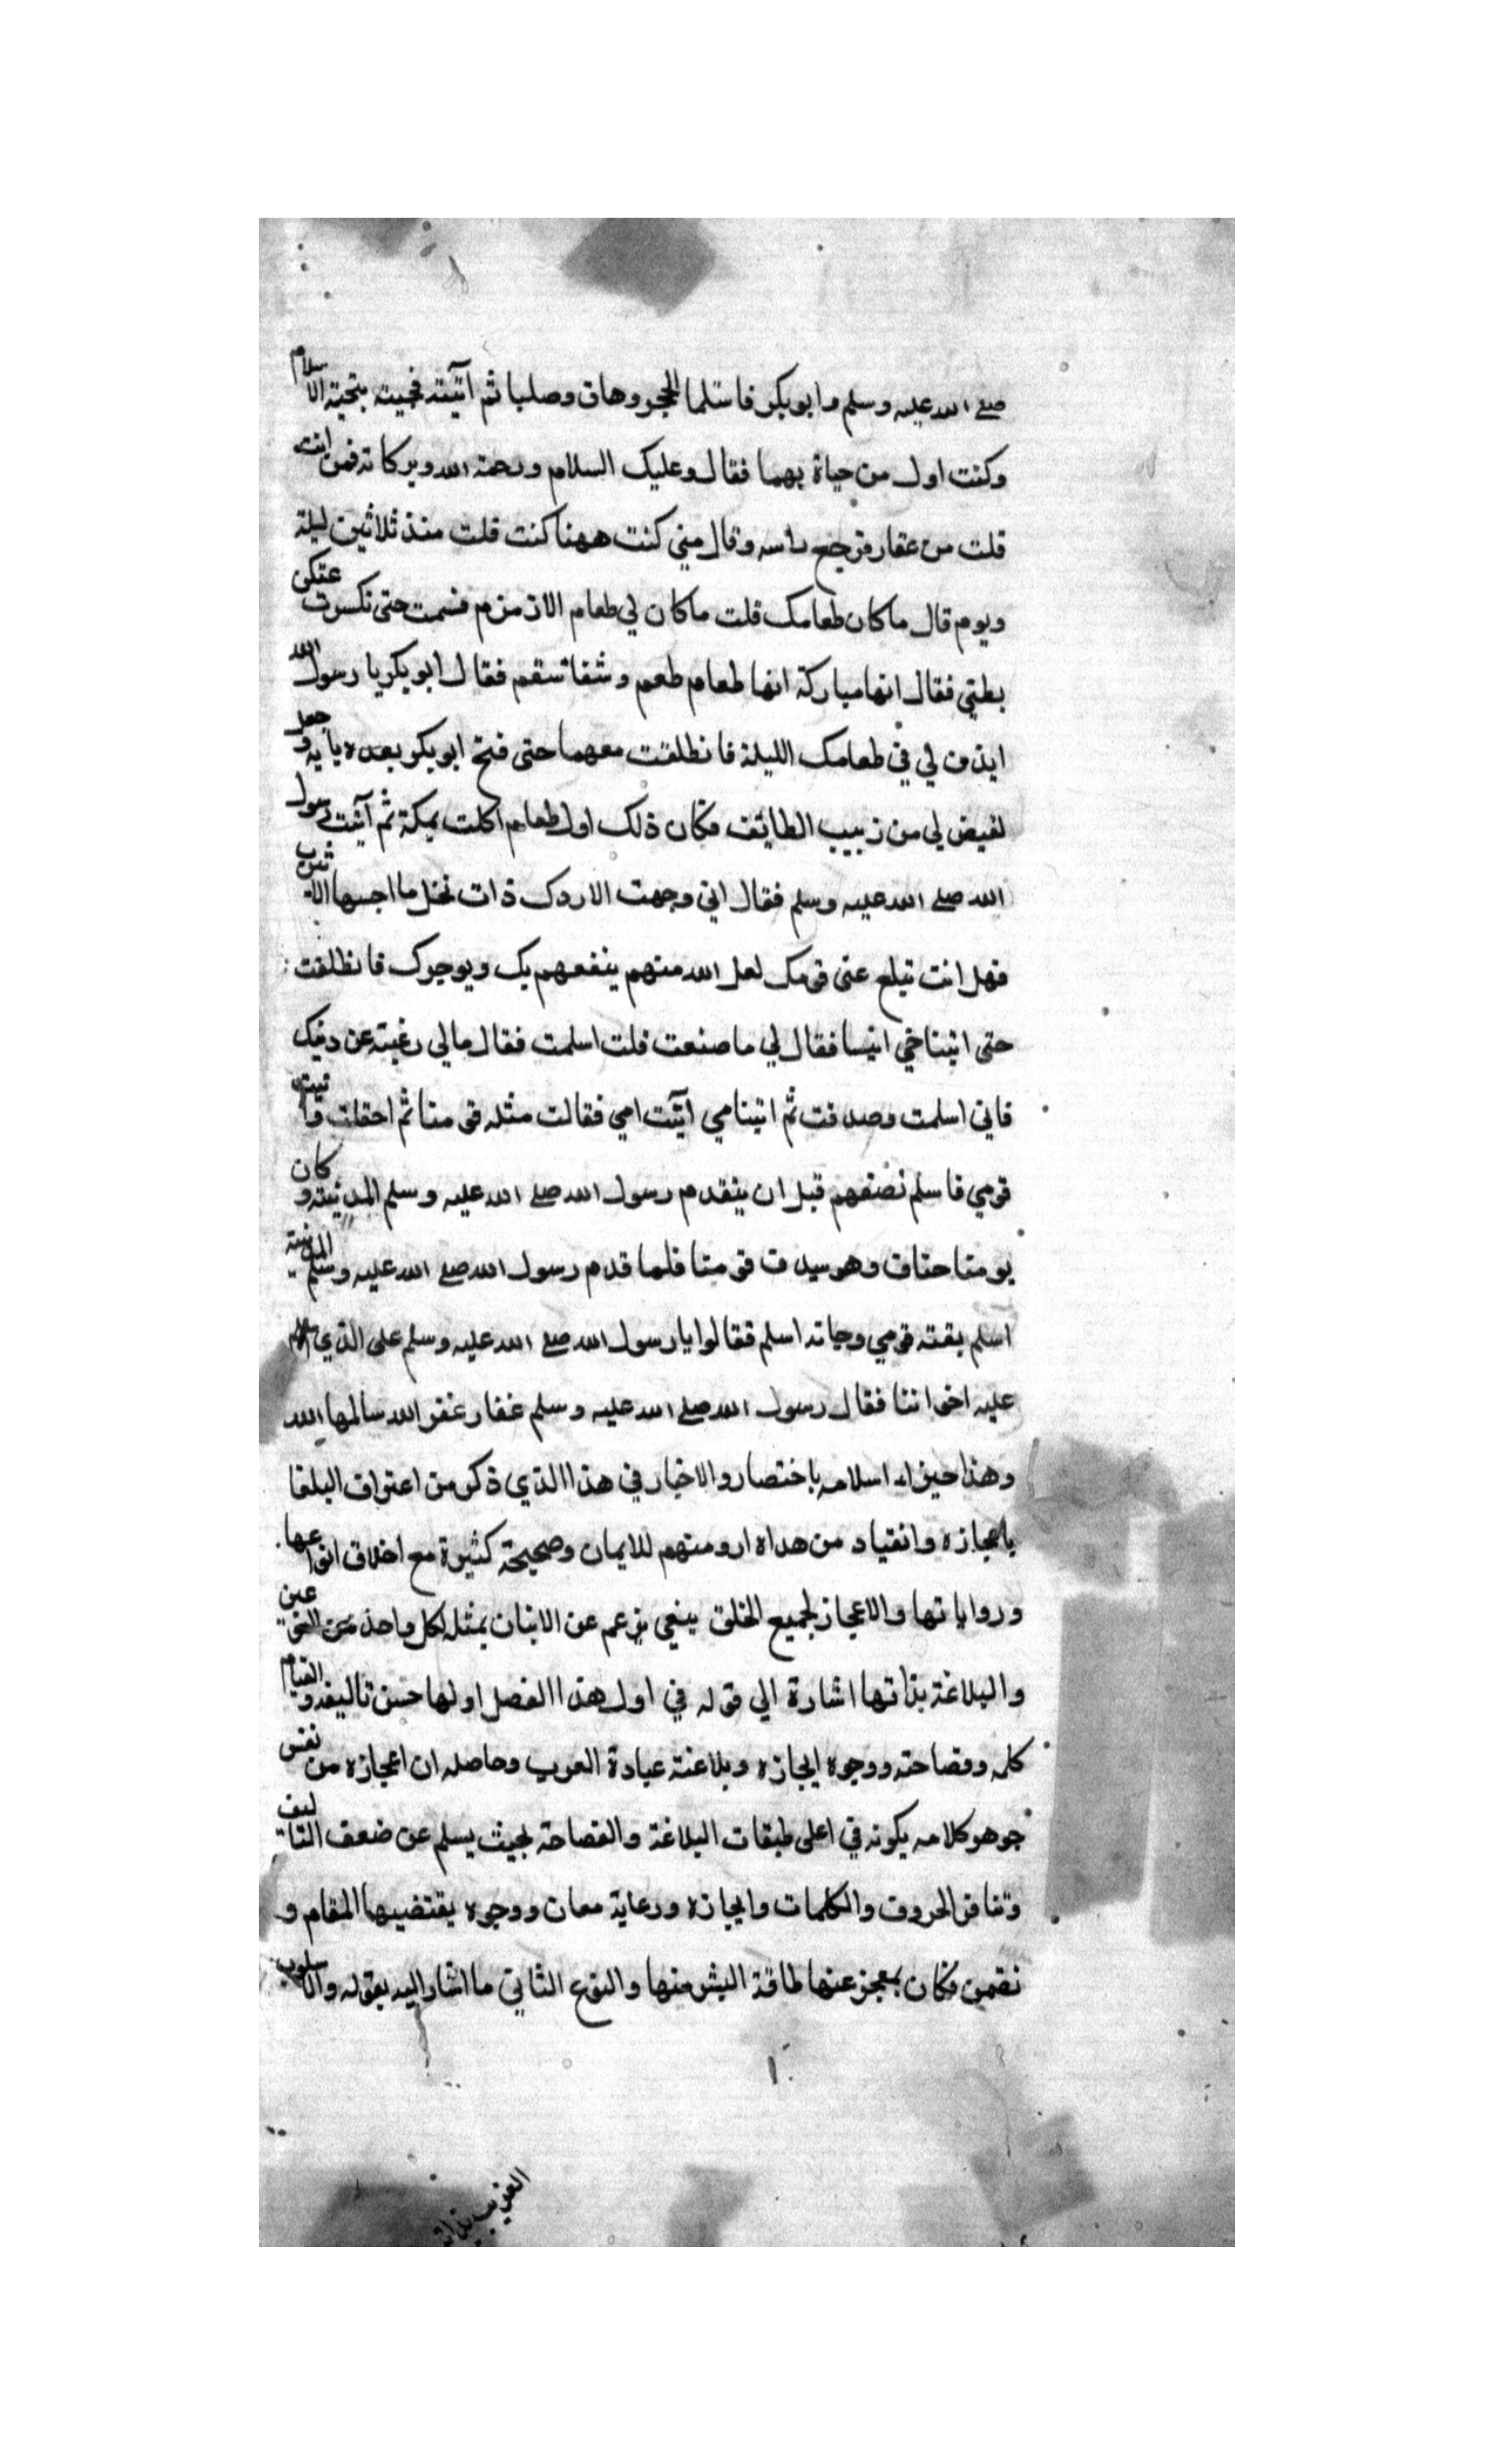 صلے الله عليه وسلم وابوبكر فاستلما الحجر وهاق وصلبا ثم اتيته فحييته بتحية الاسلام
وكنت اول من حياة بهما فقال وعليك السلام ورحمة الله وبركاته فمن انت
قلت من عقار فرجع راسه وقال متي كنت ههنا كنت قلت منذ ثلاثين ليلة
ويوم قال ما كان طعامك قلت ما كان لي طعام الا زمزم فسمت حتى نكسرت عتكن
بطني فقال انها مباركة انها طعام طعم وشفا سقم فقال ابو بكر يا رسول الله
ايذن لي في طعامك الليلة فانطلقت معهما حتى فتح ابو بكر بعده بابه وجعل
لفيض لي من زبيب الطايف فكان ذلك اول طعام اكلت بمكة ثم آتيت رسول
الله صلے الله عليه وسلم فقال اني وجهت الاردك ذات نخل ما احسبها الا يثرب
فهل انت تبلع عنى قومك لعل الله منهم ينفعهم بك ويوجرك فانطلقت
حتى اتينا خي انيسا فقال لي ما صنعت قلت اسلمت فقال مالي رغبته عن دينك
فاني اسلمت وصدقت ثم اتينا مي آتيت امي فقالت مثله قومنا ثم احقلت فاتيت
قومي فاسلم نصفهم قبل ان يتقدم رسول الله صلے الله عليه وسلم المدينة وكان
يومنا حتاف وهو سيد ف قومنا فلما قدم رسول الله صلے الله عليه وسلم المدينة
اسلم بقته قومي وجاته اسلم فقالوا يا رسول الله صلے الله عليه وسلم على الذي اسلم
عليه اخواننا فقال رسول الله صلے الله عليه وسلم غفار غفر الله سالمها الله
وهذا حيزاء اسلامه باختصار والاخبار في هذا الذي ذكر من اعتراف البلغا
باعجازه وانقياد من هداه ارومتهم للايمان وصحيحة كثيرة مع اخلاق انواعها
ورواياتها والاعجاز لجميع الخلق ينعي بزعم عن الاتيان بمثله لكل واحد من النوعين
والبلاغة بذاتها اشارة الي قوله في اول هذا الفصل اولها حسن تاليفه والقيام
كلمه وفصاحته ووجوه ايجازه وبلاغته عبادة العرب وحاصله ان اعجازه من نفس
جوهر كلامه يكونه في اعلى طبقات البلاغة والفصاحة بحيث يسلم عن ضعف التاليف
وتنافر الحروف والكلمات وايجازه ورعاية معان ووجوه يقتضيها المقام و
نقمن فكان بمعجز عنها طاقة البشر منها والنوع الثاني ما اشار اليه بقوله والاسلوب
الغريب بذاته